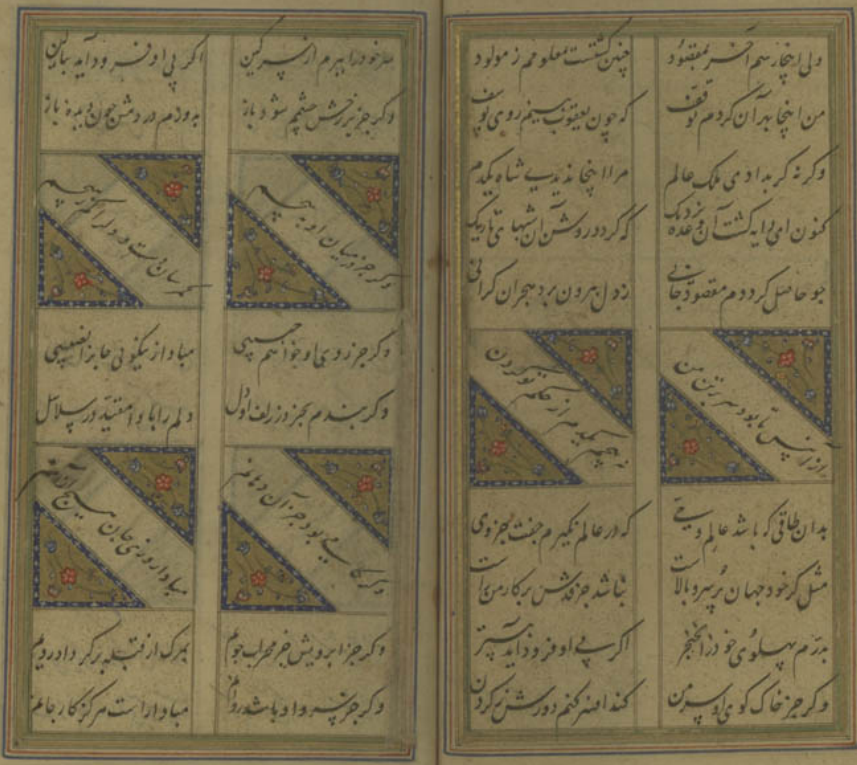 ولی اینجا رسم آخر بمقصود چنین گشتست معلومم ز مولود
من اینجا بهر آن کردم توقف که چون یعقوب بینم روی یوسف
وگر نه گر بدادی ملک عالم مرا اینجا ندیدی شاه یکدم
کنون ای دایه گشت آن وعده نزدیک که گردد روشن آن شبهای تاریک
چو حاصل گردد م مقصود جانی ز دل بیرون برد هجران گرانی
از این پس تا بود سر بر تن من نه پیچم یک سر از حکم تو گردن
بدان طاقی که باشد عالم وی که در عالم نگیرم جفت بجز وی
مثل گر خود جهان پر سرو بالاست نباشد جز قدش بر کار من راست
بدرم پهلوی خود را بخنجر اگر بی او فرود آید ببستر
وگر جز خاک کوی او سر من کند افسر کنم دورش ز گردن
سر خود را ببرم از سر کین اگر بی او فرود آید ببالین
وگر جز بر رخش چشمم شود باز بدوزم در دمش چون دیده باز
وگر جز در میان او به پیچم کمرسان دست در ولد اگر هیچم
وگر جز روی او خواهم حبیبی مبادا از نیکوئی جانرا نصیبی
وگر بندم بجز در زلف او دل دلم را با دوا مقید در سلاسل
وگر کامی بود جز آن دهانم مبادا روزی جان هیچ از آنم
وگر جز ابرویش محراب جویم بمرگ از قبله برگردا درویم
وگر جز سرو او باشد روانم مبادا راست هرگز کار جانم